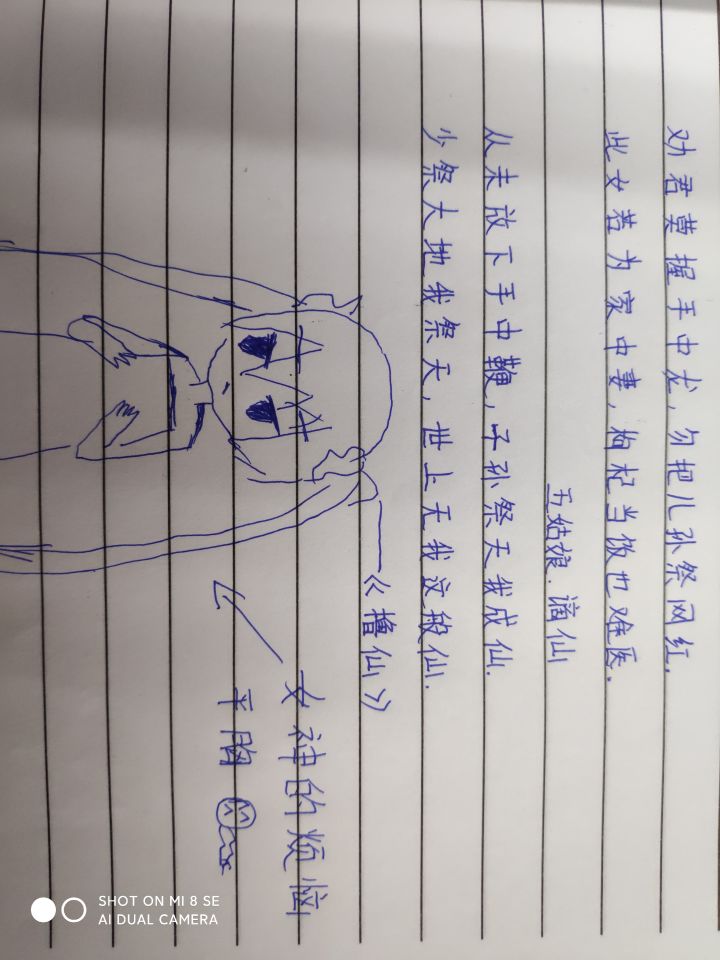 劝君莫握手中龙，勿把儿孙祭网红．
此女若为家中妻，枸杞当饭也难医．
五姑娘．谪仙
从未放下手中鞭，子孙祭天我成仙．
少祭大地我祭天，世上无我这般仙．
《撸仙》
女神的烦恼
平胸
SHOT ON MI 8 SE
AI DUAL CAMERA